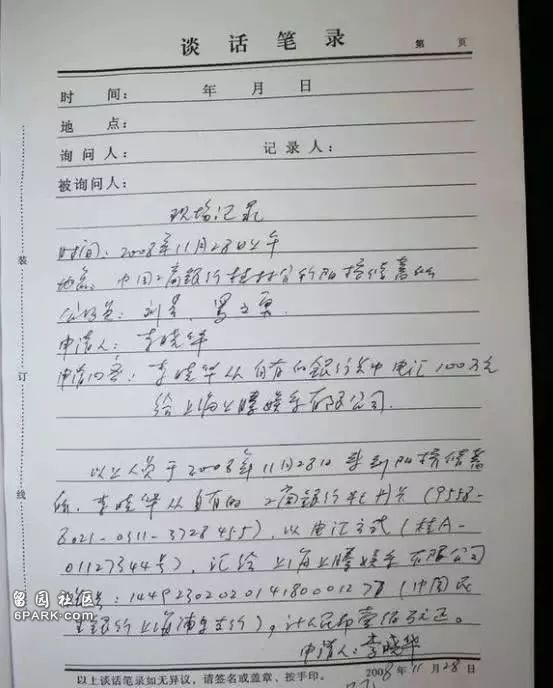 谈话笔录
第 页
时 间： 年 月 日
地 点：
询问人： 记录人：
被询问人：
现场记录
时间：2008年11月28日上午
地点：中国工商银行桂林分行阳桥储蓄所
公证员：刘 罗文
申请人：李晓华
申请内容：李晓华从自有的银行卡中电汇100万元
给上海上腾娱乐有限公司.
以上人员于2008年11月28日来到阳桥储蓄
所，李晓华从自有的工商银行牡丹卡（9558-
8021-0311-3728455），以电汇方式（桂A-
01127344号），汇给上海上腾娱乐有限公司
号：1449230202014180001278（中国民
生银行上海浦东支行），计人民币壹佰万元正。
申请人：李晓华
以上谈话笔录如无异议，请签名或盖章、按手印。
2008年11月28日
装
订
线
留园社区
6PARK.com